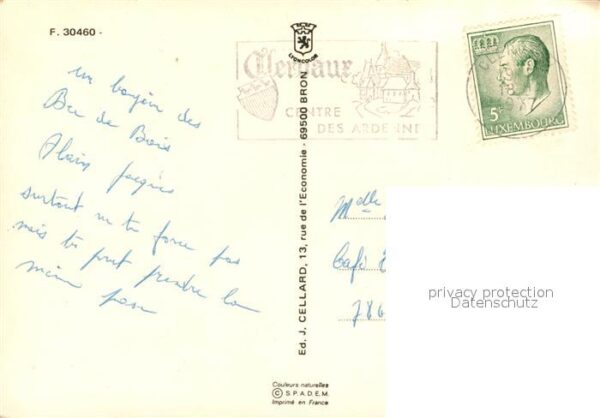 F. 30460 -
LYONCOLOR
Clervaux
CENTRE
DES ARDENNES
5F
LUXEMBOURG
un des
Bec de Bois
Alain Jacques
surtout ne te force pas
mais tu peut prendre la
même pose
Ed. J. CELLARD, 13, rue de l'Economie - 69500 BRON
Mdlle
Café
786
privacy protection
Datenschutz
Couleurs naturelles
© S.P.A.D.E.M.
Imprimé en France